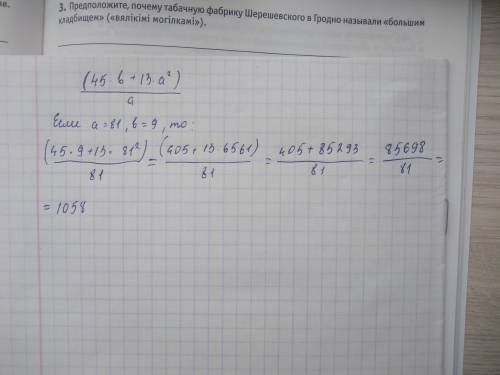 ве.
3. Предположите, почему табачную фабрику Шерешевского в Гродно называли «большим
кладбищем» («вялікімі могілкамі»).
(45 · b + 13 · a²)
a
Если a = 81, b = 9, то:
(45 · 9 + 13 · 81²) / 81 = (405 + 13 6561) / 81 = 405 + 85293 / 81 = 85698 / 81 =
= 1058